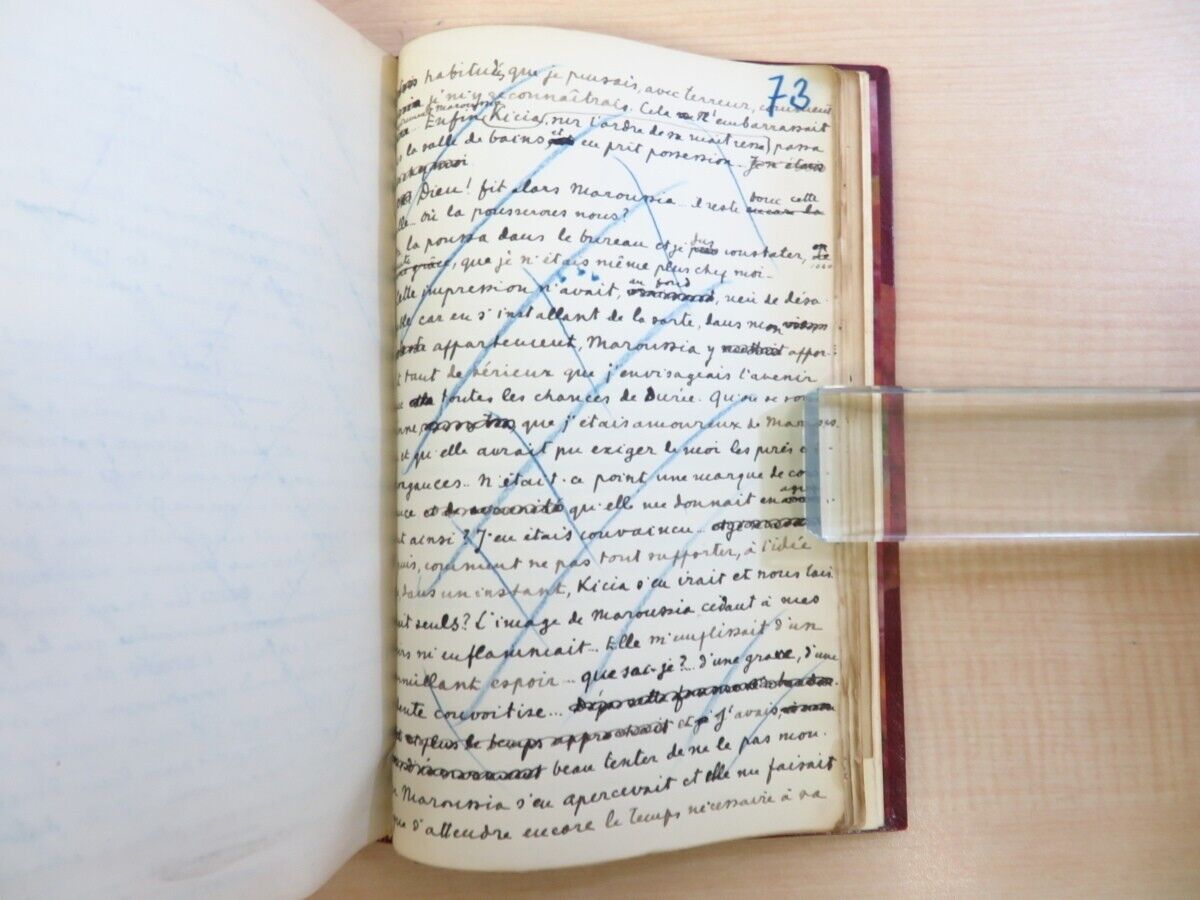 73
habitudes, que je pensais, avec terreur, comment
je m'y reconnaîtrais. Cela m'embarrassait
Enfin (Kicia, sur l'ordre de sa maîtresse) passa
la salle de bains et en prit possession. Je n'étais
Dieu! fit alors Maroussia... Il reste donc cette
où la pousserons nous?
la poussa dans le bureau et je pus constater,
grâce, que je n'étais même plus chez moi.
Cette impression n'avait, au fond, rien de désa-
car en s'installant de la sorte, dans mon
appartement, Maroussia y appor-
tant de sérieux que j'envisageais l'avenir
toutes les chances de Durée. Qu'on se
que j'étais amoureux de
et qu'elle aurait pu exiger de moi les pires
N'était-ce point une marque de
qu'elle me donnait en
ainsi? J'en étais convaincu...
comment ne pas tout supporter, à l'idée
dans un instant, Kicia s'en irait et nous lais-
seuls? L'image de Maroussia cédant à mes
m'enflammait... Elle m'emplissait d'un
espoir... que sais-je?... d'une grave, d'une
convoitise...
plus le temps approchait et J'avais,
beau tenter de ne le pas mon-
Maroussia s'en apercevait et elle me faisait
d'attendre encore le temps nécessaire à sa